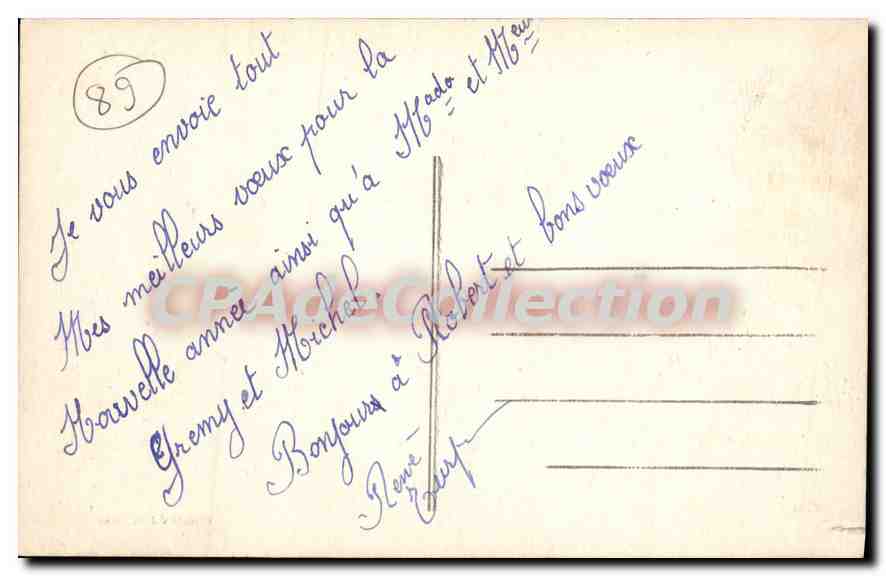 89
Je vous envoie tout
Mes meilleurs vœux pour la
Nouvelle année ainsi qu'à Mada et Meu
Gremy et Michel.
Bonjours à Robert et bons voeux
René
CPAdeCollection